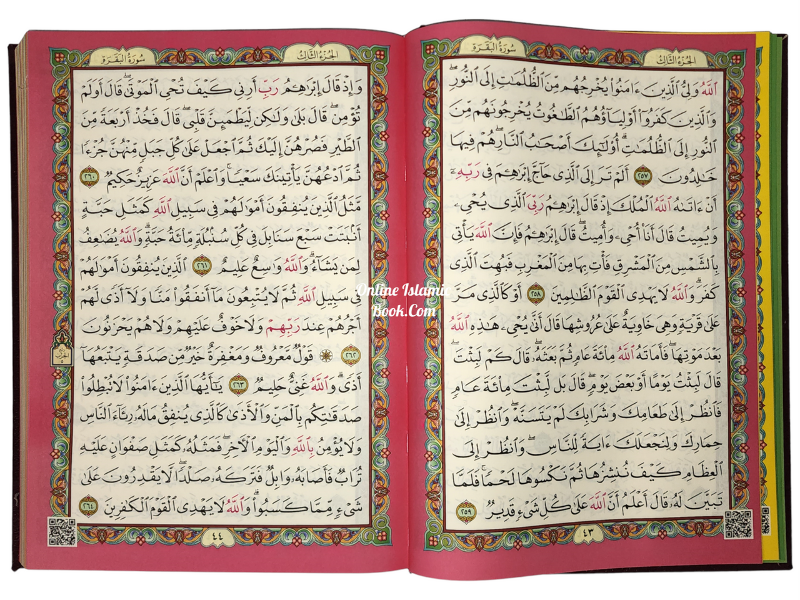 سُورَةُ البَقَرَةِ
الجُزْءُ الثَّالِثُ
ٱللَّهُ وَلِىُّ ٱلَّذِينَ ءَامَنُوا۟ يُخْرِجُهُم مِّنَ ٱلظُّلُمَٰتِ إِلَى ٱلنُّورِ ۖ
وَٱلَّذِينَ كَفَرُوٓا۟ أَوْلِيَآؤُهُمُ ٱلطَّٰغُوتُ يُخْرِجُونَهُم مِّنَ
ٱلنُّورِ إِلَى ٱلظُّلُمَٰتِ ۗ أُو۟لَٰٓئِكَ أَصْحَٰبُ ٱلنَّارِ ۖ هُمْ فِيهَا
خَٰلِدُونَ ٢٥٧ أَلَمْ تَرَ إِلَى ٱلَّذِى حَآجَّ إِبْرَٰهِـۧمَ فِى رَبِّهِۦٓ
أَنْ ءَاتَىٰهُ ٱللَّهُ ٱلْمُلْكَ إِذْ قَالَ إِبْرَٰهِـۧمُ رَبِّىَ ٱلَّذِى يُحْىِۦ
وَيُمِيتُ قَالَ أَنَا۠ أُحْىِۦ وَأُمِيتُ ۖ قَالَ إِبْرَٰهِـۧمُ فَإِنَّ ٱللَّهَ يَأْتِى
بِٱلشَّمْسِ مِنَ ٱلْمَشْرِقِ فَأْتِ بِهَا مِنَ ٱلْمَغْرِبِ فَبُهِتَ ٱلَّذِى
كَفَرَ ۗ وَٱللَّهُ لَا يَهْدِى ٱلْقَوْمَ ٱلظَّٰلِمِينَ ٢٥٨ أَوْ كَٱلَّذِى مَرَّ
عَلَىٰ قَرْيَةٍ وَهِىَ خَاوِيَةٌ عَلَىٰ عُرُوشِهَا قَالَ أَنَّىٰ يُحْىِۦ هَٰذِهِ ٱللَّهُ
بَعْدَ مَوْتِهَا ۖ فَأَمَاتَهُ ٱللَّهُ مِا۟ئَةَ عَامٍ ثُمَّ بَعَثَهُۥ ۖ قَالَ كَمْ لَبِثْتَ ۖ
قَالَ لَبِثْتُ يَوْمًا أَوْ بَعْضَ يَوْمٍ ۖ قَالَ بَل لَّبِثْتَ مِا۟ئَةَ عَامٍ
فَٱنظُرْ إِلَىٰ طَعَامِكَ وَشَرَابِكَ لَمْ يَتَسَنَّهْ ۖ وَٱنظُرْ إِلَىٰ
حِمَارِكَ وَلِنَجْعَلَكَ ءَايَةً لِّلنَّاسِ ۖ وَٱنظُرْ إِلَى
ٱلْعِظَامِ كَيْفَ نُنشِزُهَا ثُمَّ نَكْسُوهَا لَحْمًا ۚ فَلَمَّا
تَبَيَّنَ لَهُۥ قَالَ أَعْلَمُ أَنَّ ٱللَّهَ عَلَىٰ كُلِّ شَىْءٍ قَدِيرٌ ٢٥٩
٤٣
سُورَةُ البَقَرَةِ
الجُزْءُ الثَّالِثُ
وَإِذْ قَالَ إِبْرَٰهِـۧمُ رَبِّ أَرِنِى كَيْفَ تُحْىِ ٱلْمَوْتَىٰ ۖ قَالَ أَوَلَمْ
تُؤْمِن ۖ قَالَ بَلَىٰ وَلَٰكِن لِّيَطْمَئِنَّ قَلْبِى ۖ قَالَ فَخُذْ أَرْبَعَةً مِّنَ
ٱلطَّيْرِ فَصُرْهُنَّ إِلَيْكَ ثُمَّ ٱجْعَلْ عَلَىٰ كُلِّ جَبَلٍ مِّنْهُنَّ جُزْءًا
ثُمَّ ٱدْعُهُنَّ يَأْتِينَكَ سَعْيًا ۚ وَٱعْلَمْ أَنَّ ٱللَّهَ عَزِيزٌ حَكِيمٌ ٢٦٠
مَّثَلُ ٱلَّذِينَ يُنفِقُونَ أَمْوَٰلَهُمْ فِى سَبِيلِ ٱللَّهِ كَمَثَلِ حَبَّةٍ
أَنۢبَتَتْ سَبْعَ سَنَابِلَ فِى كُلِّ سُنۢبُلَةٍ مِّا۟ئَةُ حَبَّةٍ ۗ وَٱللَّهُ يُضَٰعِفُ
لِمَن يَشَآءُ ۗ وَٱللَّهُ وَٰسِعٌ عَلِيمٌ ٢٦١ ٱلَّذِينَ يُنفِقُونَ أَمْوَٰلَهُمْ
فِى سَبِيلِ ٱللَّهِ ثُمَّ لَا يُتْبِعُونَ مَآ أَنفَقُوا۟ مَنًّا وَلَآ أَذًى ۙ لَّهُمْ
أَجْرُهُمْ عِندَ رَبِّهِمْ وَلَا خَوْفٌ عَلَيْهِمْ وَلَا هُمْ يَحْزَنُونَ
٢٦٢ ۞ قَوْلٌ مَّعْرُوفٌ وَمَغْفِرَةٌ خَيْرٌ مِّن صَدَقَةٍ يَتْبَعُهَآ
أَذًى ۗ وَٱللَّهُ غَنِىٌّ حَلِيمٌ ٢٦٣ يَٰٓأَيُّهَا ٱلَّذِينَ ءَامَنُوا۟ لَا تُبْطِلُوا۟
صَدَقَٰتِكُم بِٱلْمَنِّ وَٱلْأَذَىٰ كَٱلَّذِى يُنفِقُ مَالَهُۥ رِئَآءَ ٱلنَّاسِ
وَلَا يُؤْمِنُ بِٱللَّهِ وَٱلْيَوْمِ ٱلْءَاخِرِ ۖ فَمَثَلُهُۥ كَمَثَلِ صَفْوَانٍ عَلَيْهِ
تُرَابٌ فَأَصَابَهُۥ وَابِلٌ فَتَرَكَهُۥ صَلْدًا ۖ لَّا يَقْدِرُونَ عَلَىٰ
شَىْءٍ مِّمَّا كَسَبُوا۟ ۗ وَٱللَّهُ لَا يَهْدِى ٱلْقَوْمَ ٱلْكَٰفِرِينَ ٢٦٤
٤٤
Online Islamic
Book.Com